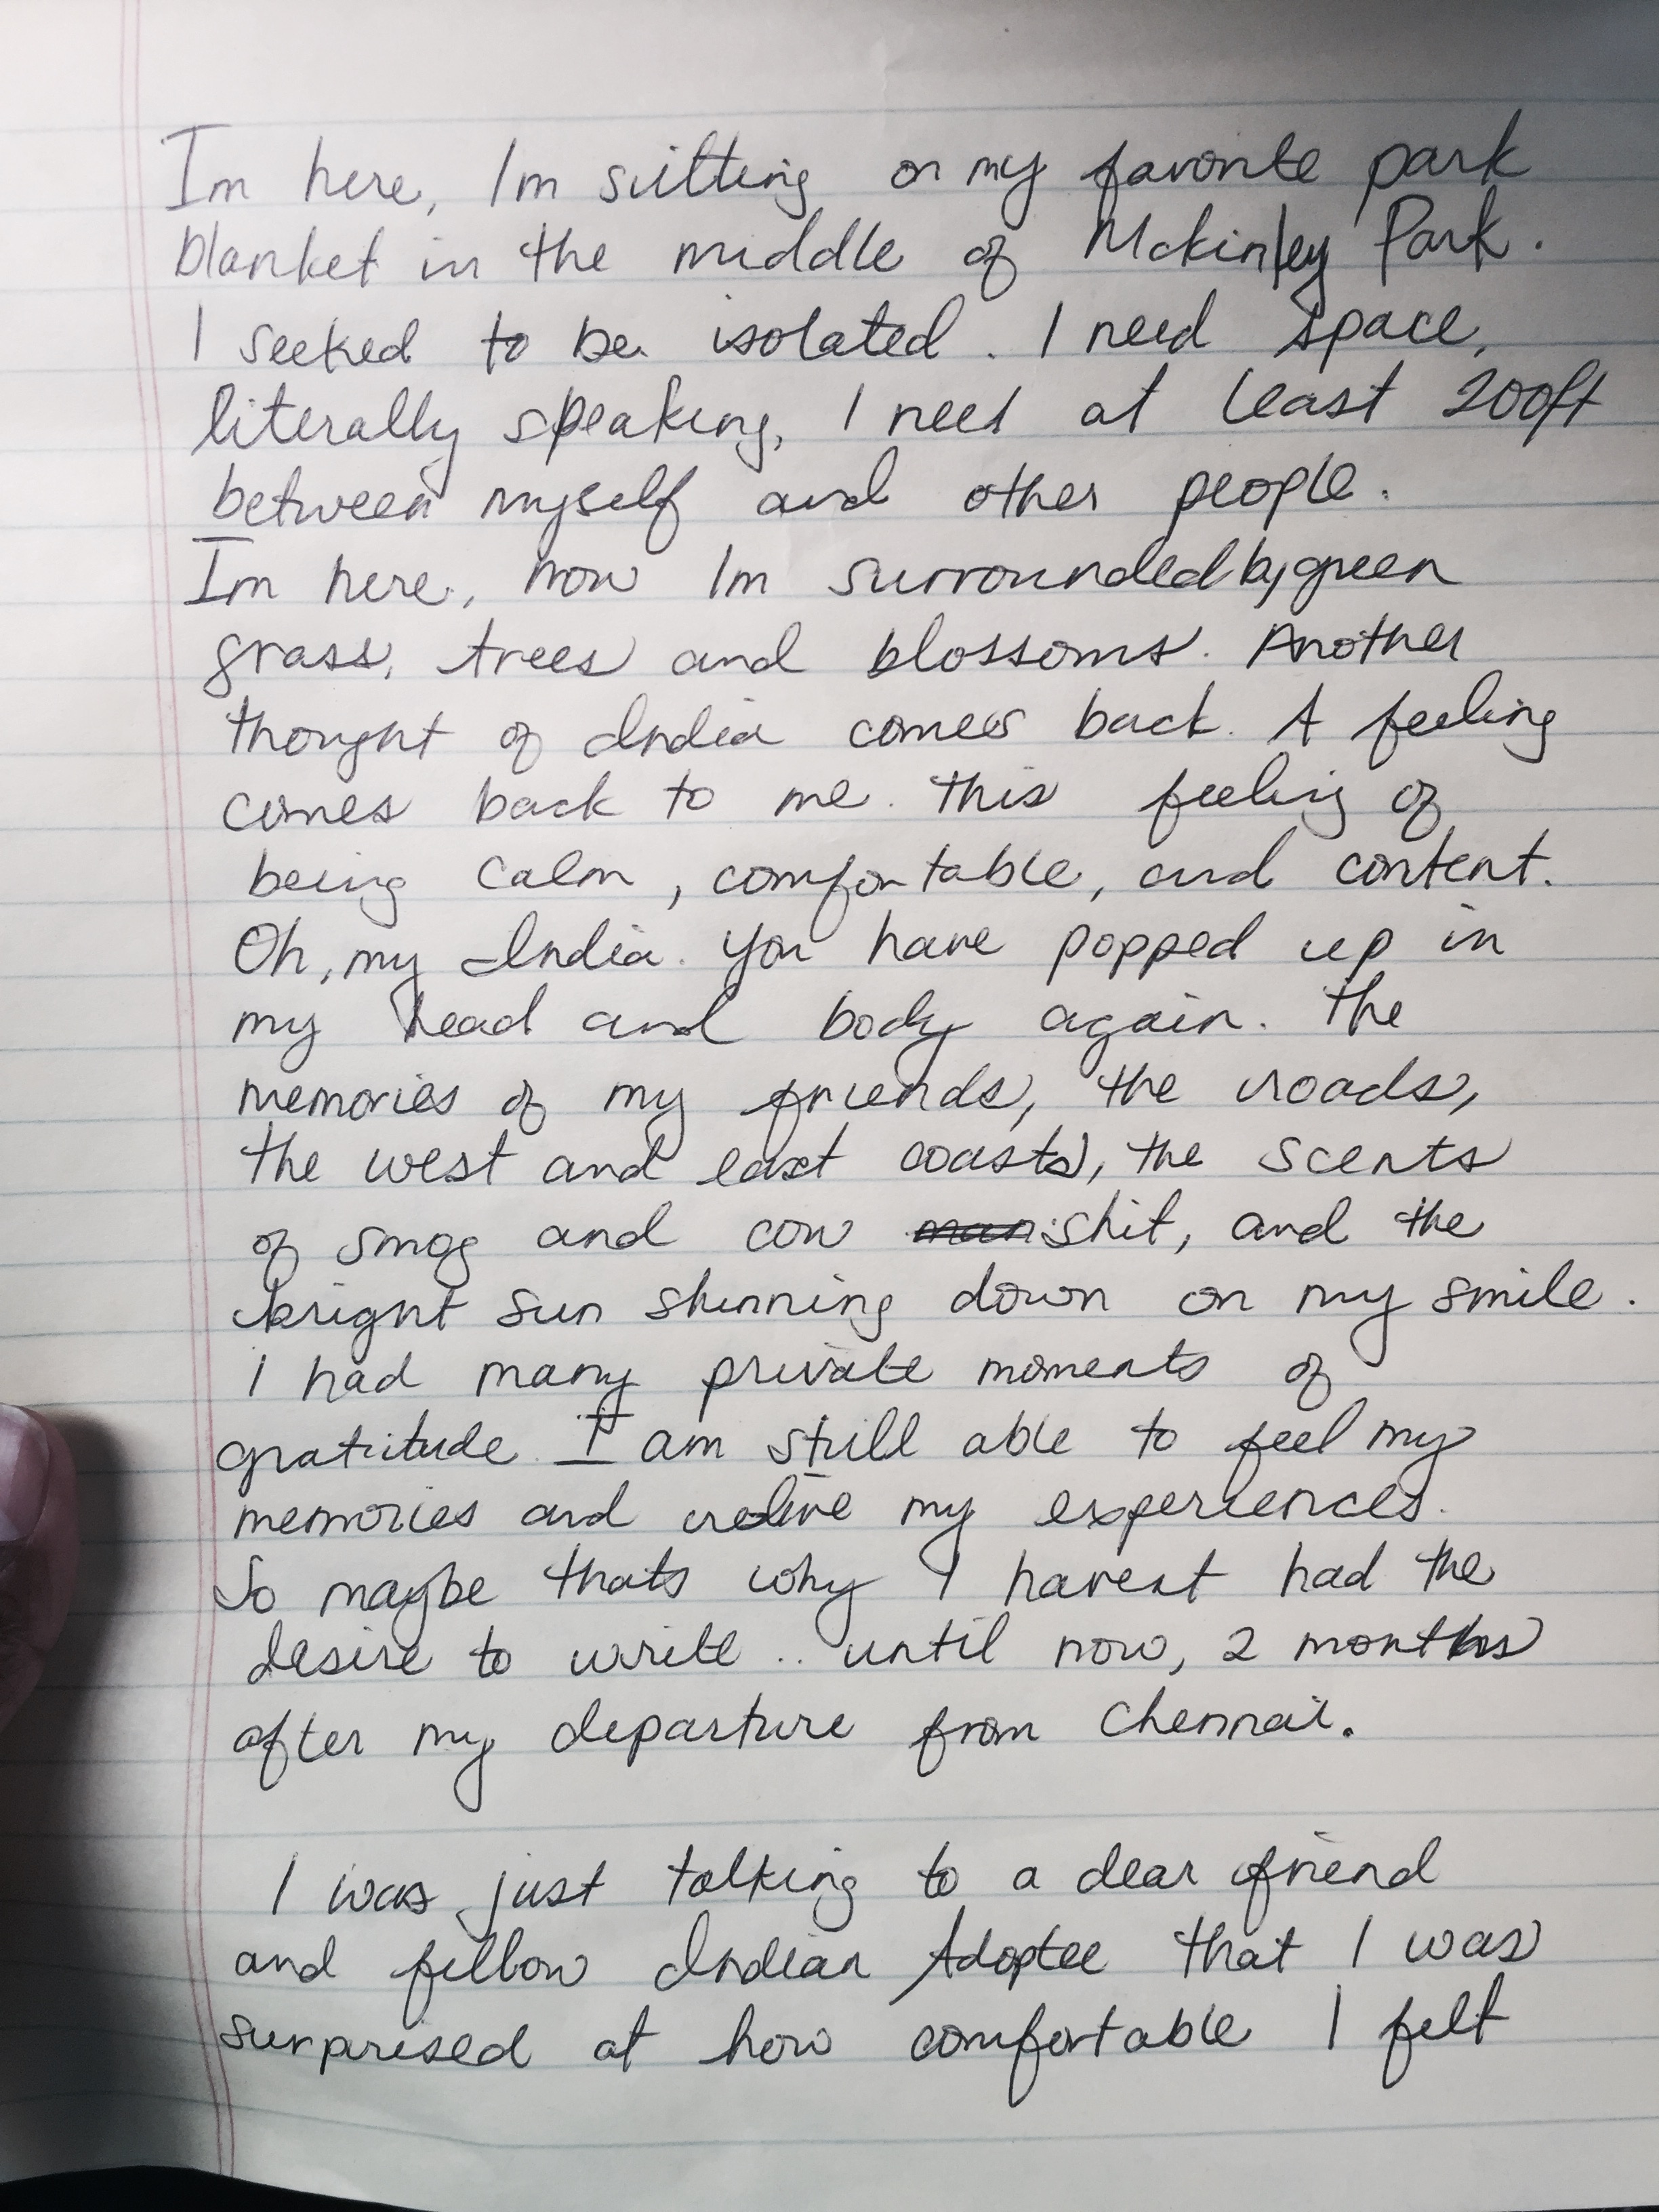 Im here, Im sitting on my favorite park
blanket in the middle of Mckinley Park.
I seeked to be isolated. I need space,
literally speaking, I need at least 200ft
between myself and other people.
Im here, now Im surrounded by green
grass, trees and blossoms. Another
thought of India comes back. A feeling
comes back to me. This feeling of
being calm, comfortable, and content.
Oh, my India. You have popped up in
my head and body again. The
memories of my friends, the roads,
the west and east coasts, the scents
of smog and cow man shit, and the
bright sun shinning down on my smile.
I had many private moments of
gratitude. I am still able to feel my
memories and relive my experiences.
So maybe thats why I havent had the
desire to write.. until now, 2 months
after my departure from Chennai.
I was just talking to a dear friend
and fellow Indian Adoptee that I was
surprised at how comfortable I felt